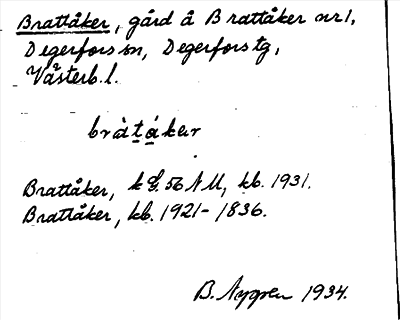 Brattåker, gård å Brattåker nr 1,
Degerfors sn, Degerfors tg,
Västerb. l.
bràtákar
Brattåker, k 56 NU, kb. 1931.
Brattåker, kb. 1921-1836.
B. Nygren 1934.